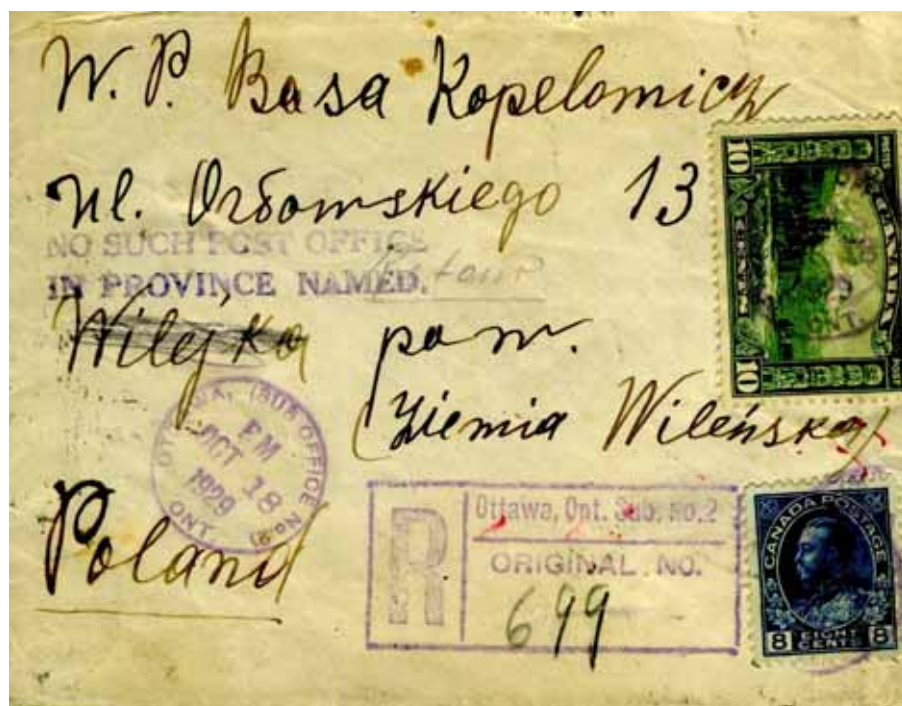 W. P. Basa Kopelowicz
ul. Orłowskiego 13
NO SUCH POST OFFICE
IN PROVINCE NAMED.
Wilejka pow.
(Ziemia Wileńska)
Poland
OTTAWA, (SUB OFFICE No. 2)
PM
OCT 18
1929
ONT.
R
Ottawa, Ont. Sub. No. 2
ORIGINAL NO.
699
10 10
CANADA
CANADA POSTAGE
8 EIGHT CENTS 8